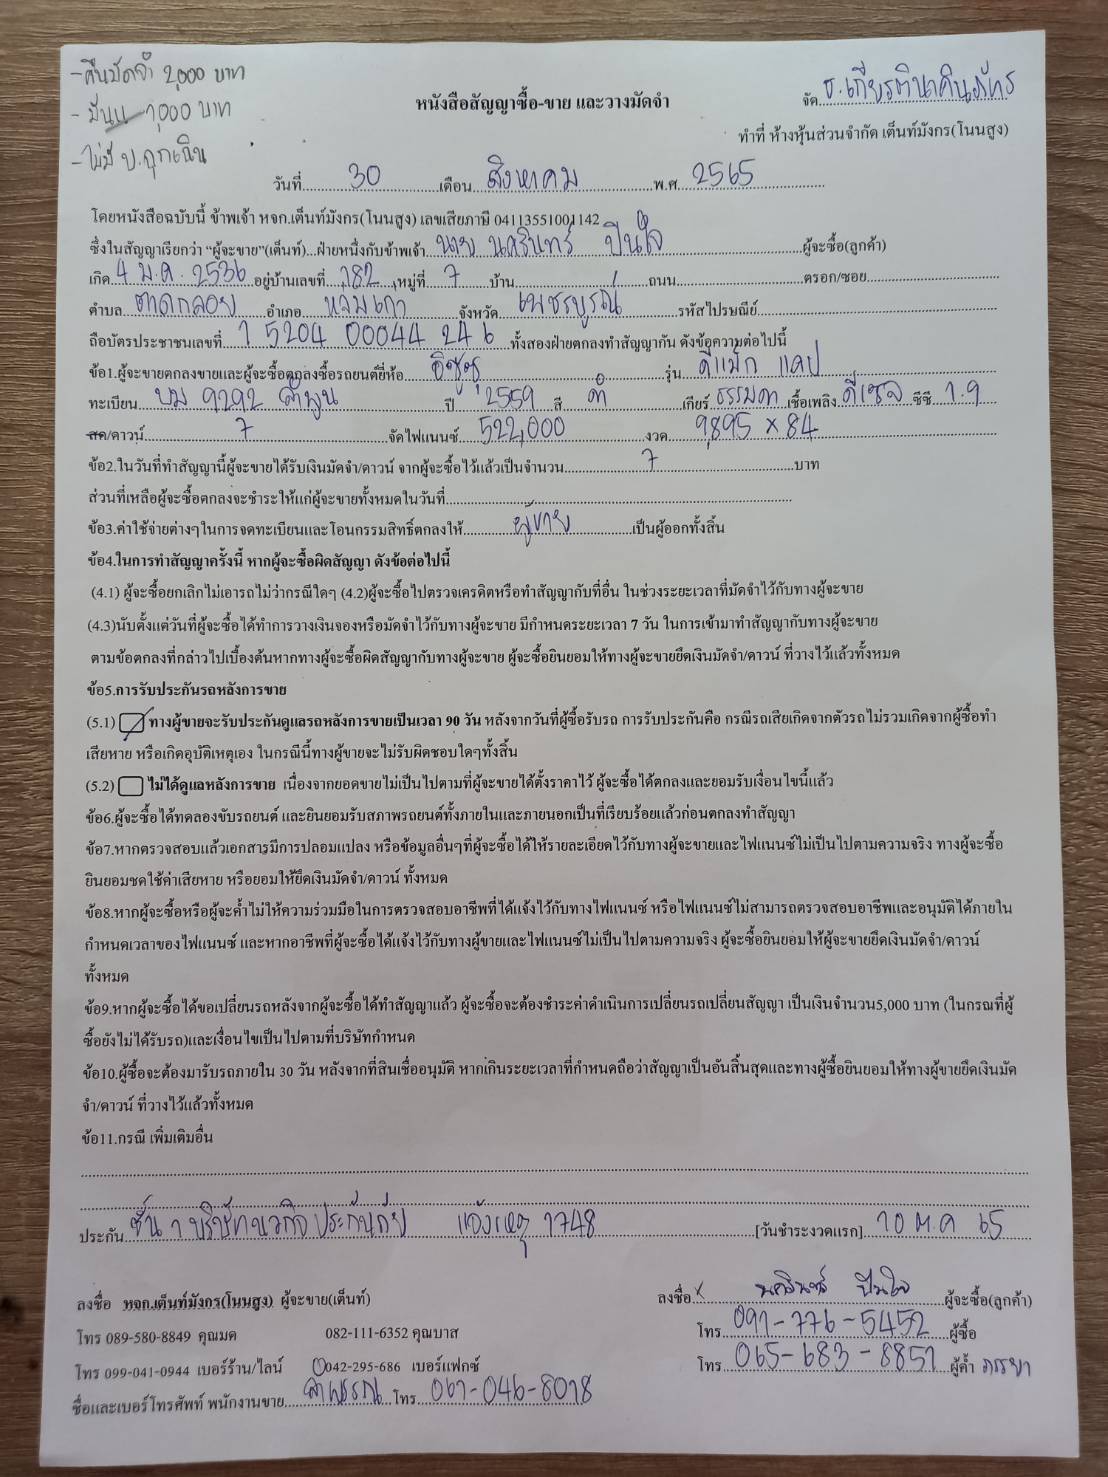 -คืนมัดจำ 2,000 บาท
- ปั๊มน 1,000 บาท
- ไม่มี บ.ฉุกเฉิน
หนังสือสัญญาซื้อ-ขาย และวางมัดจำ
จัด ธ.เกียรตินาคินภัทร
ทำที่ ห้างหุ้นส่วนจำกัด เต็นท์มังกร(โนนสูง)
วันที่ 30 เดือน สิงหาคม พ.ศ. 2565
โดยหนังสือฉบับนี้ ข้าพเจ้า หจก.เต็นท์มังกร(โนนสูง) เลขเสียภาษี 04113551001142
ซึ่งในสัญญาเรียกว่า “ผู้จะขาย”(เต็นท์)...ฝ่ายหนึ่งกับข้าพเจ้า นาย นครินทร์ ปีนใจ ผู้จะซื้อ(ลูกค้า)
เกิด 4 ม.ค. 2536 อยู่บ้านเลขที่ 182 หมู่ที่ 7 บ้าน ถนน ตรอก/ซอย
ตำบล ตาดกลอย อำเภอ หล่มเก่า จังหวัด เพชรบูรณ์ รหัสไปรษณีย์
ถือบัตรประชาชนเลขที่ 1 5204 00044 24 6 ทั้งสองฝ่ายตกลงทำสัญญากัน ดังข้อความต่อไปนี้
ข้อ1.ผู้จะขายตกลงขายและผู้จะซื้อตกลงซื้อรถยนต์ยี่ห้อ อีซูซุ รุ่น ดีแม็ก แคป
ทะเบียน บม 9292 ลำพูน ปี 2559 สี ดำ เกียร์ ธรรมดา เชื้อเพลิง ดีเซล ซีซี 1.9
สด/ดาวน์ 7 จัดไฟแนนซ์ 522,000 งวด 9,895 x 84
ข้อ2.ในวันที่ทำสัญญานี้ผู้จะขายได้รับเงินมัดจำ/ดาวน์ จากผู้จะซื้อไว้แล้วเป็นจำนวน 7 บาท
ส่วนที่เหลือผู้จะซื้อตกลงจะชำระให้แก่ผู้จะขายทั้งหมดในวันที่
ข้อ3.ค่าใช้จ่ายต่างๆในการจดทะเบียนและโอนกรรมสิทธิ์ตกลงให้ ผู้ขาย เป็นผู้ออกทั้งสิ้น
ข้อ4.ในการทำสัญญาครั้งนี้ หากผู้จะซื้อผิดสัญญา ดังข้อต่อไปนี้
(4.1) ผู้จะซื้อยกเลิกไม่เอารถไม่ว่ากรณีใดๆ (4.2)ผู้จะซื้อไปตรวจเครดิตหรือทำสัญญากับที่อื่น ในช่วงระยะเวลาที่มัดจำไว้กับทางผู้จะขาย
(4.3)นับตั้งแต่วันที่ผู้จะซื้อได้ทำการวางเงินจองหรือมัดจำไว้กับทางผู้จะขาย มีกำหนดระยะเวลา 7 วัน ในการเข้ามาทำสัญญากับทางผู้จะขาย
ตามข้อตกลงที่กล่าวไปเบื้องต้นหากทางผู้จะซื้อผิดสัญญากับทางผู้จะขาย ผู้จะซื้อยินยอมให้ทางผู้จะขายยึดเงินมัดจำ/ดาวน์ ที่วางไว้แล้วทั้งหมด
ข้อ5.การรับประกันรถหลังการขาย
(5.1) ทางผู้ขายจะรับประกันดูแลรถหลังการขายเป็นเวลา 90 วัน หลังจากวันที่ผู้ซื้อรับรถ การรับประกันคือ กรณีรถเสียเกิดจากตัวรถ ไม่รวมเกิดจากผู้ซื้อทำ
เสียหาย หรือเกิดอุบัติเหตุเอง ในกรณีนี้ทางผู้ขายจะไม่รับผิดชอบใดๆทั้งสิ้น
(5.2) ไม่ได้ดูแลหลังการขาย เนื่องจากยอดขายไม่เป็นไปตามที่ผู้จะขายได้ตั้งราคาไว้ ผู้จะซื้อได้ตกลงและยอมรับเงื่อนไขนี้แล้ว
ข้อ6.ผู้จะซื้อได้ทดลองขับรถยนต์ และยินยอมรับสภาพรถยนต์ทั้งภายในและภายนอกเป็นที่เรียบร้อยแล้วก่อนตกลงทำสัญญา
ข้อ7.หากตรวจสอบแล้วเอกสารมีการปลอมแปลง หรือข้อมูลอื่นๆที่ผู้จะซื้อได้ให้รายละเอียดไว้กับทางผู้จะขายและไฟแนนซ์ไม่เป็นไปตามความจริง ทางผู้จะซื้อ
ยินยอมชดใช้ค่าเสียหาย หรือยอมให้ยึดเงินมัดจำ/ดาวน์ ทั้งหมด
ข้อ8.หากผู้จะซื้อหรือผู้จะค้ำไม่ให้ความร่วมมือในการตรวจสอบอาชีพที่ได้แจ้งไว้กับทางไฟแนนซ์ หรือไฟแนนซ์ไม่สามารถตรวจสอบอาชีพและอนุมัติได้ภายใน
กำหนดเวลาของไฟแนนซ์ และหากอาชีพที่ผู้จะซื้อได้แจ้งไว้กับทางผู้ขายและไฟแนนซ์ไม่เป็นไปตามความจริง ผู้จะซื้อยินยอมให้ผู้จะขายยึดเงินมัดจำ/ดาวน์
ทั้งหมด
ข้อ9.หากผู้จะซื้อได้ขอเปลี่ยนรถหลังจากผู้จะซื้อได้ทำสัญญาแล้ว ผู้จะซื้อจะต้องชำระค่าดำเนินการเปลี่ยนรถเปลี่ยนสัญญา เป็นเงินจำนวน5,000 บาท (ในกรณที่ผู้
ซื้อยังไม่ได้รับรถ)และเงื่อนไขเป็นไปตามที่บริษัทกำหนด
ข้อ10.ผู้ซื้อจะต้องมารับรถภายใน 30 วัน หลังจากที่สินเชื่ออนุมัติ หากเกินระยะเวลาที่กำหนดถือว่าสัญญาเป็นอันสิ้นสุดและทางผู้ซื้อยินยอมให้ทางผู้ขายยึดเงินมัด
จำ/ดาวน์ ที่วางไว้แล้วทั้งหมด
ข้อ11.กรณี เพิ่มเติมอื่น
ประกัน ชั้น 1 บริษัทนวกิจประกันภัย แจ้งเหตุ 1748 [วันชำระงวดแรก] 10 ต.ค 65
ลงชื่อ หจก.เต็นท์มังกร(โนนสูง) ผู้จะขาย(เต็นท์) ลงชื่อ x นครินทร์ ปีนใจ ผู้จะซื้อ(ลูกค้า)
โทร 089-580-8849 คุณมด 082-111-6352 คุณบาส โทร 091-776-5452 ผู้ซื้อ
โทร 099-041-0944 เบอร์ร้าน/ไลน์ 042-295-686 เบอร์แฟกซ์ โทร 065-683-8851 ผู้ค้ำ ภรรยา
ชื่อและเบอร์โทรศัพท์ พนักงานขาย ลำพรรณ โทร 061-046-8018